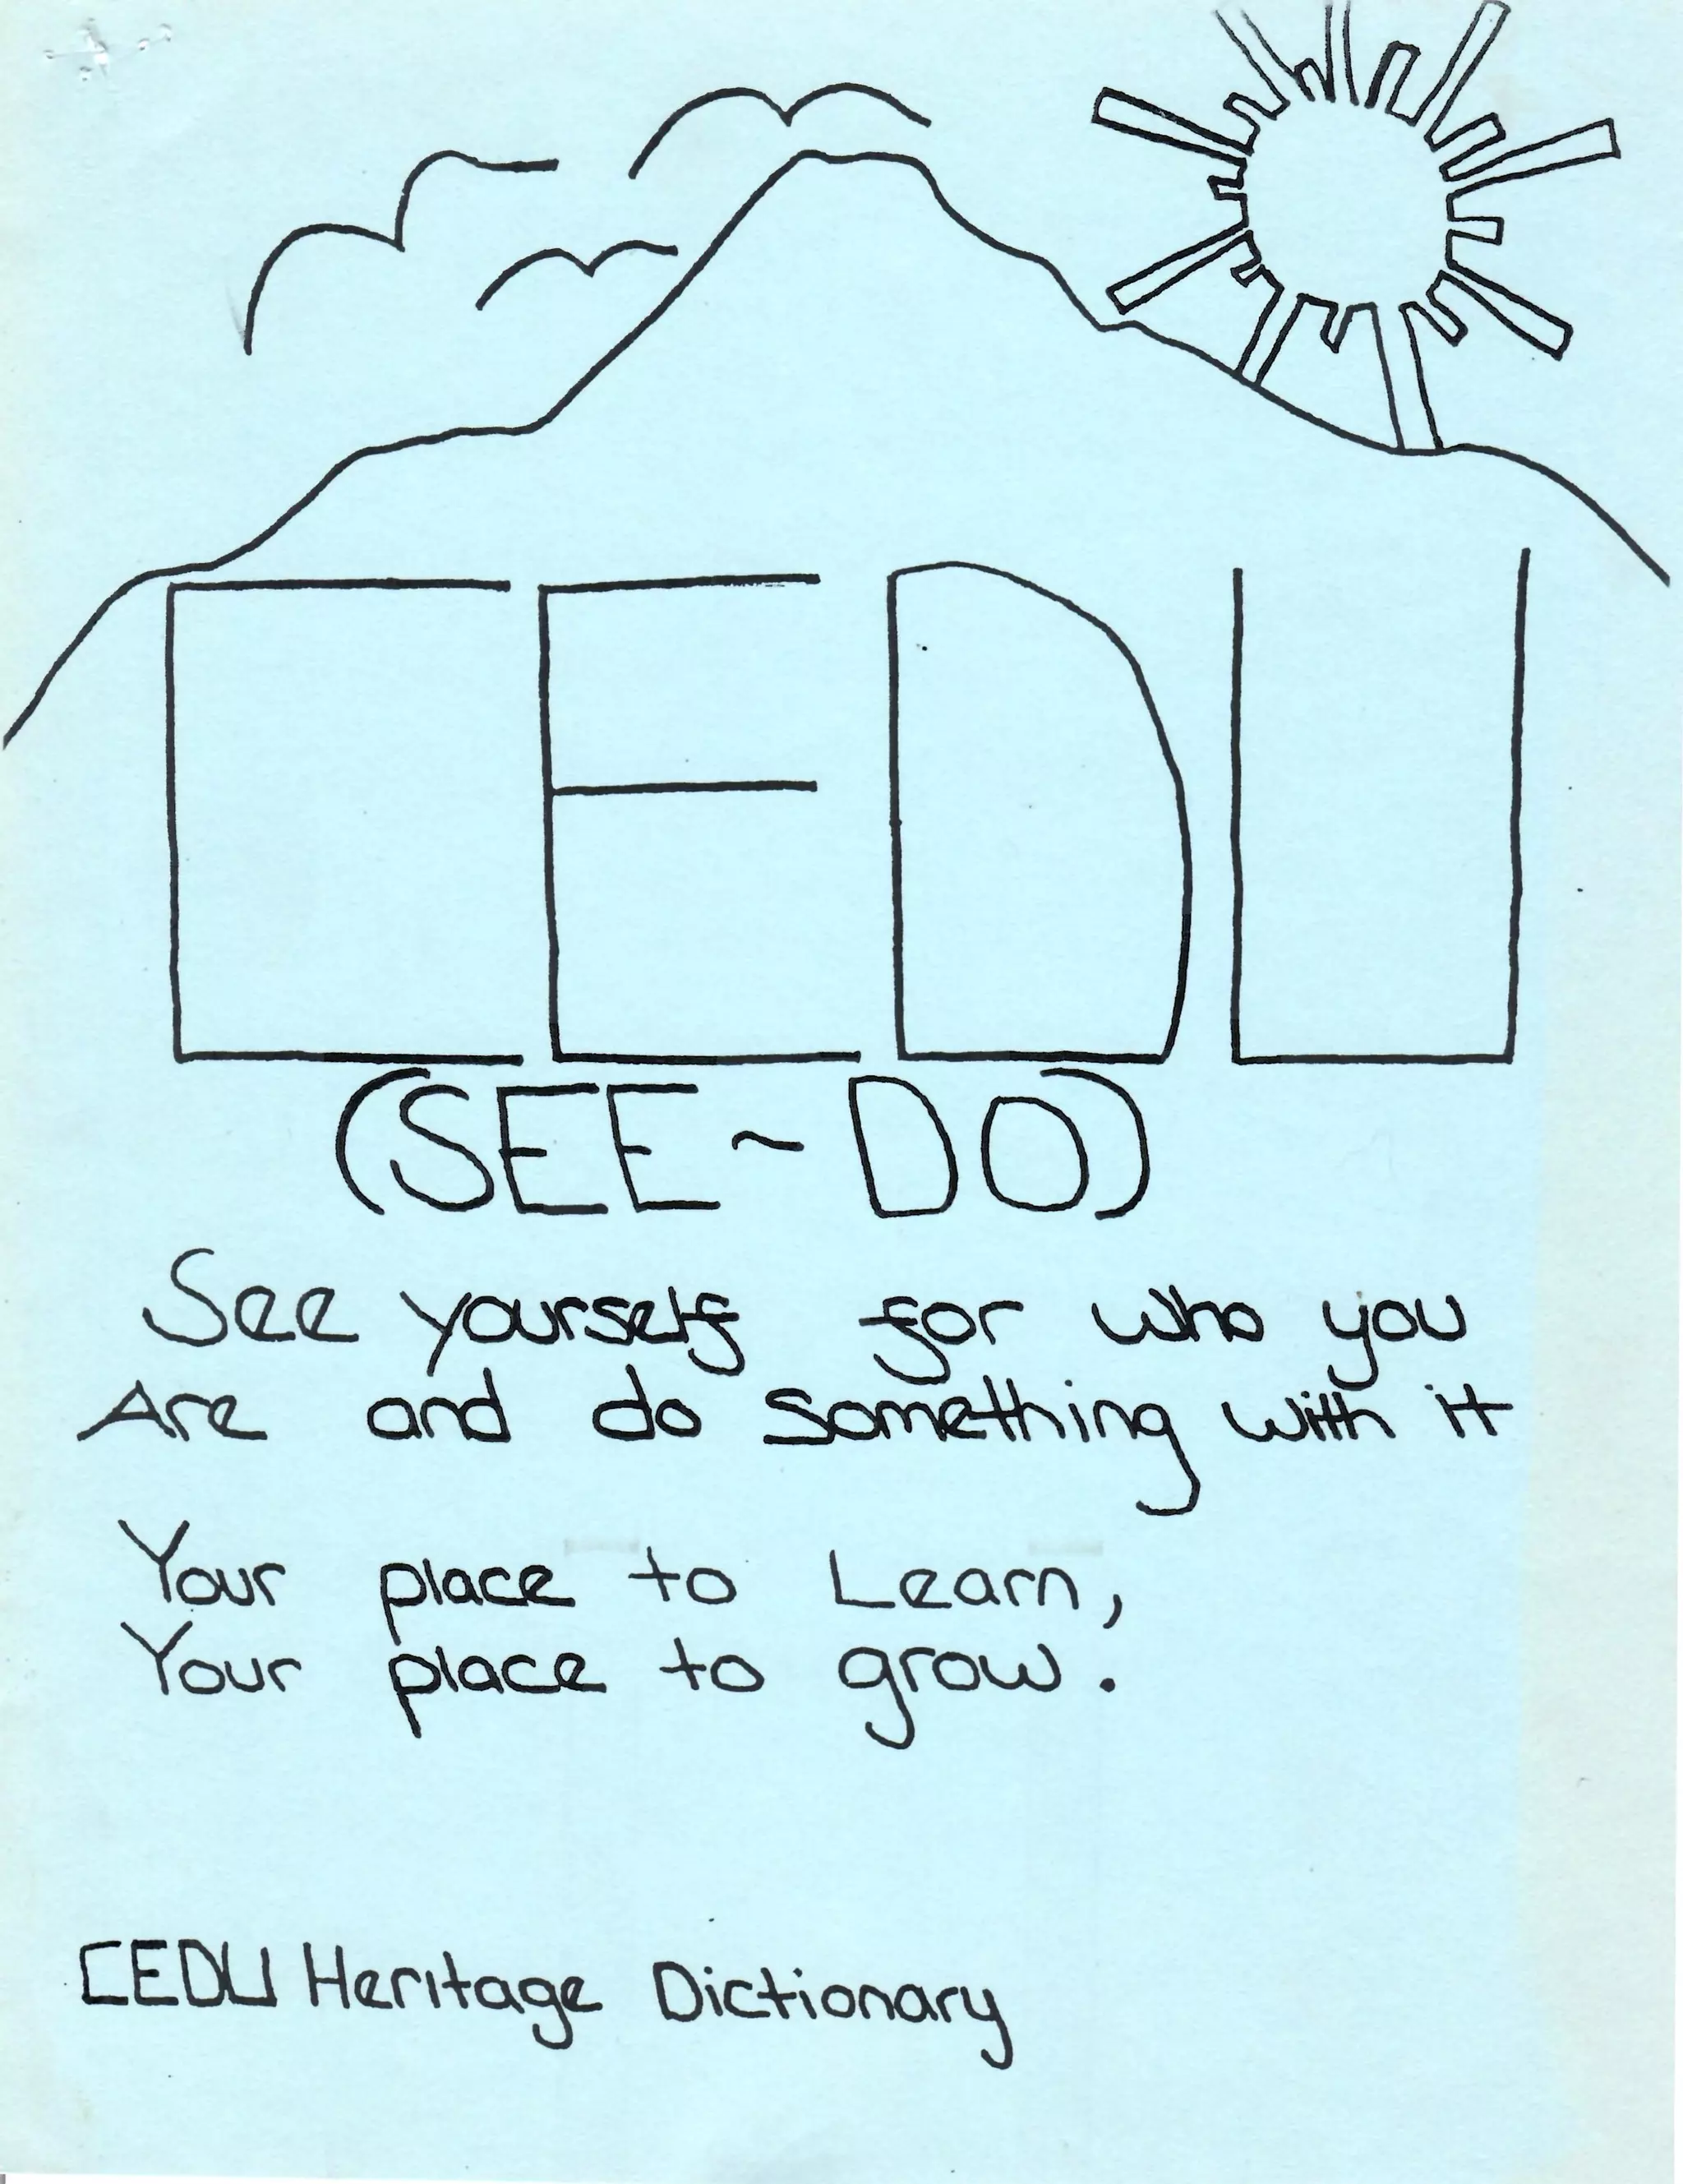 CEDU
(SEE~DO)
See yourself for who you
Are and do something with it
Your place to Learn,
Your place to grow.
CEDU Heritage Dictionary